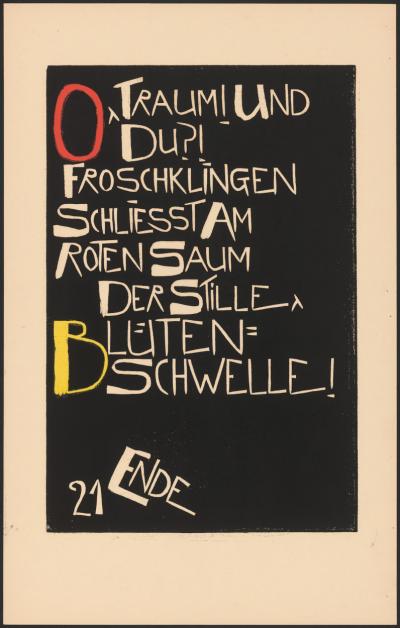 O, TRAUM! UND
DU?!
FROSCHKLINGEN
SCHLIESST AM
ROTEN SAUM
DER STILLE,
BLÜTEN=
SCHWELLE!
21 ENDE